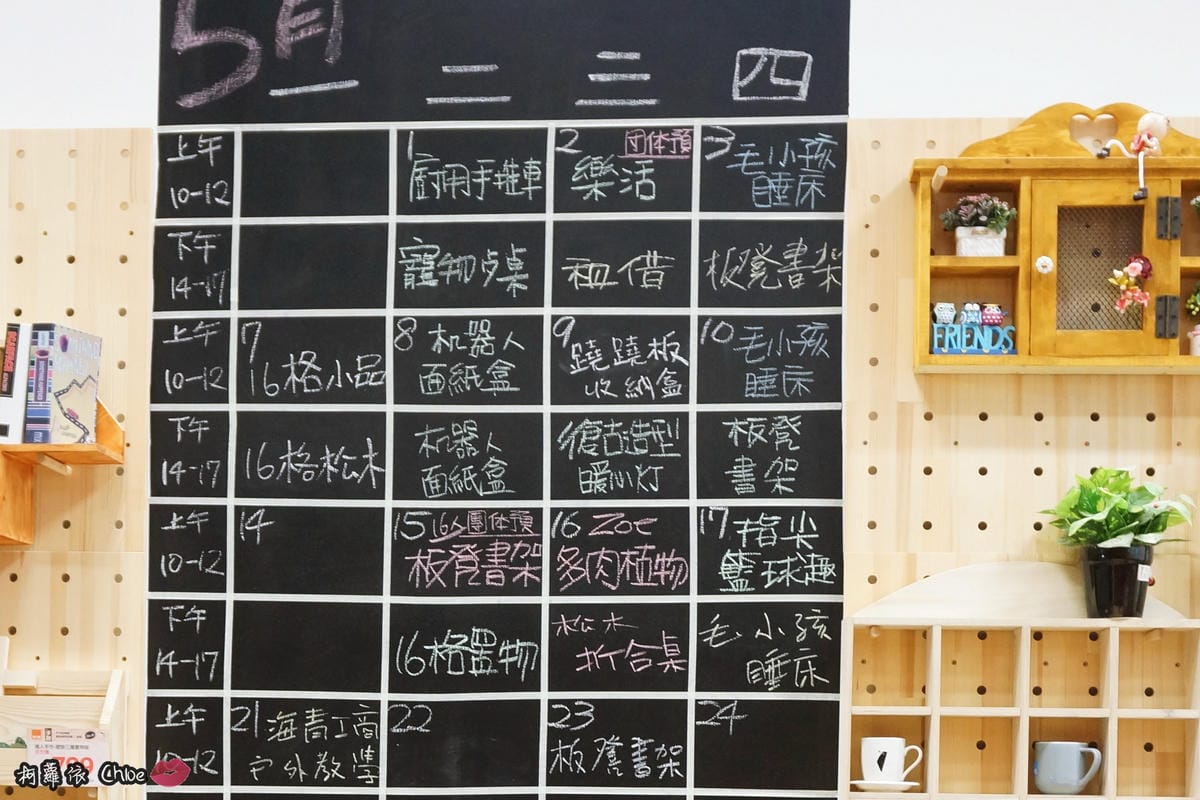 5月
一 二 三 四
上午 10-12
1 廚用手推車
2 团体預 樂活
3 毛小孩 睡床
下午 14-17
寵物桌
租借
板凳書架
上午 10-12
7 16格小品
8 机器人 面紙盒
9 蹺蹺板 收納盒
10 毛小孩 睡床
下午 14-17
16格松木
机器人 面紙盒
復古造型 暖心灯
板凳 書架
上午 10-12
14
15 16人團体預 板凳書架
16 Zoe 多肉植物
17 指尖 籃球趣
下午 14-17
16格置物
松木 折合桌
毛小孩 睡床
上午 10-12
21 海青工商 戶外教學
22
23 板凳書架
24
FRIENDS
柯蘿依 Chloe